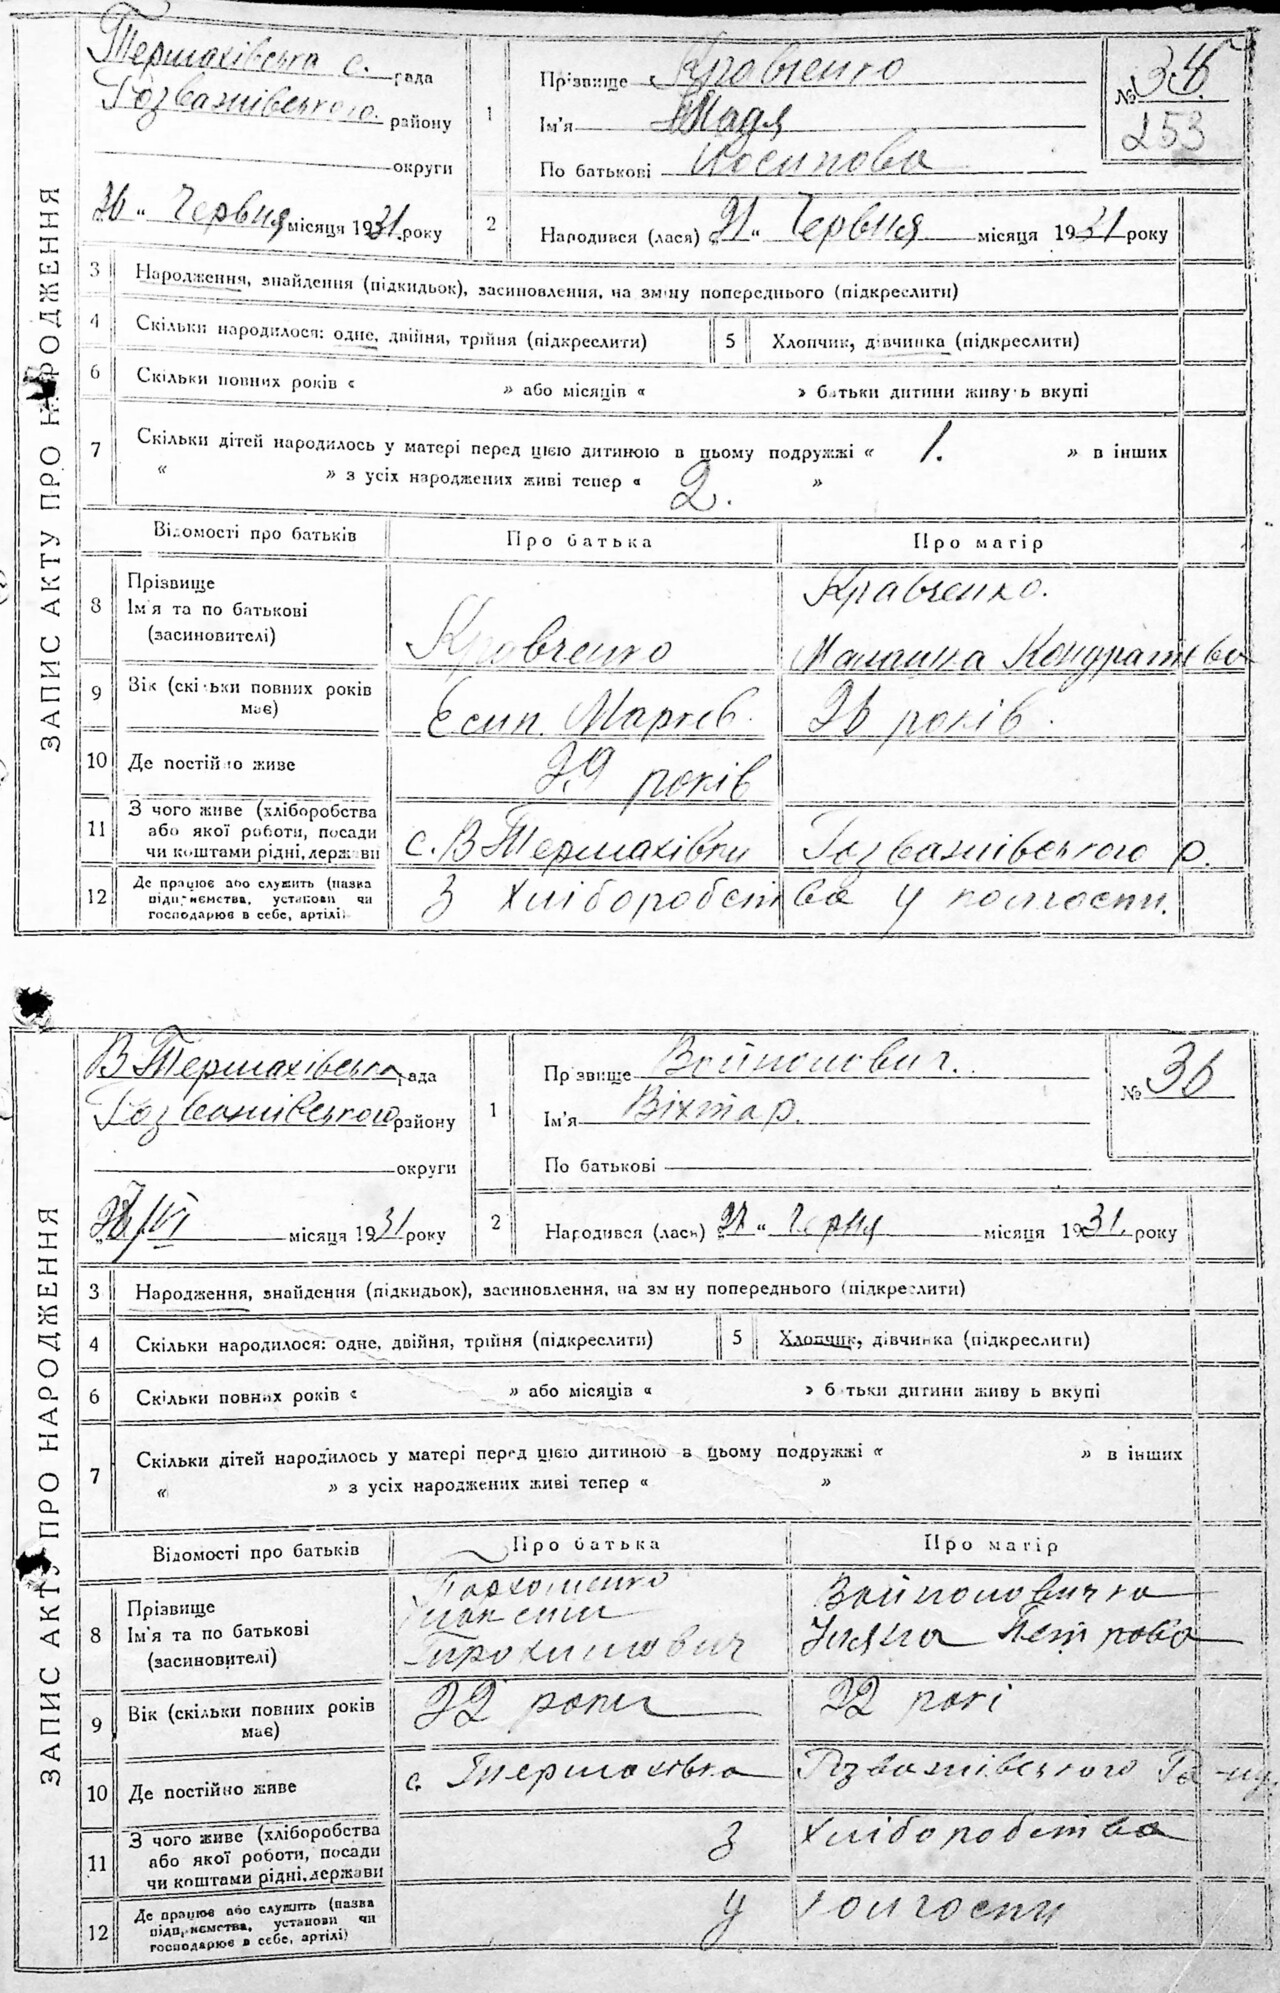 ЗАПИС АКТУ ПРО НАРОДЖЕННЯ
Термахівська с. рада
Розважівського району
округи
26 " Червня місяця 1931 року
1
Прізвище Кравченко
Ім'я Надя
По батькові Иосипова
№ 35
253
2
Народився (лася) „21" Червня місяця 1931 року
3 Народження, знайдення (підкидьок), засиновлення, на зміну попереднього (підкреслити)
4 Скільки народилося: одне, двійня, трійня (підкреслити)
5 Хлопчик, дівчинка (підкреслити)
6 Скільки повних років « » або місяців « » батьки дитини живуть вкупі
7 Скільки дітей народилось у матері перед цією дитиною в цьому подружжі « 1. » в інших
« » з усіх народжених живі тепер « 2. »
Відомості про батьків Про батька Про матір
8 Прізвище
Ім'я та по батькові
(засиновителі)
Кравченко
Кравченко.
Маланка Кондратієва
9 Вік (скільки повних років має)
Есип. Марків.
26 років.
10 Де постійно живе
29 років
11 З чого живе (хліборобства
або якої роботи, посади
чи коштами рідні, держави
с. В Термахівки Розважівського р.
12 Де працює або служить (назва
підприємства, установи чи
господарює в себе, артілі)
З хліборобства у колгоспи.
ЗАПИС АКТУ ПРО НАРОДЖЕННЯ
В Термахівська рада
Розважівського району
округи
26/VI місяця 1931 року
1
Прізвище Войнолович.
Ім'я Віхтар.
По батькові
№ 36
2
Народився (лася) „21" Черня місяця 1931. року
3 Народження, знайдення (підкидьок), засиновлення, на зміну попереднього (підкреслити)
4 Скільки народилося: одне, двійня, трійня (підкреслити)
5 Хлопчик, дівчинка (підкреслити)
6 Скільки повних років « » або місяців « » батьки дитини живуть вкупі
7 Скільки дітей народилось у матері перед цією дитиною в цьому подружжі « » в інших
« » з усіх народжених живі тепер « »
Відомості про батьків Про батька Про матір
8 Прізвище
Ім'я та по батькові
(засиновителі)
Пархоменко
Трохимович
Войноловичка
Уляна Петрова
9 Вік (скільки повних років має)
22 роки
22 рокі
10 Де постійно живе
с. Термахівка Розважівського
11 З чого живе (хліборобства
або якої роботи, посади
чи коштами рідні, держави
З хліборобства
12 Де працює або служить (назва
підприємства, установи чи
господарює в себе, артілі)
у колгоспи